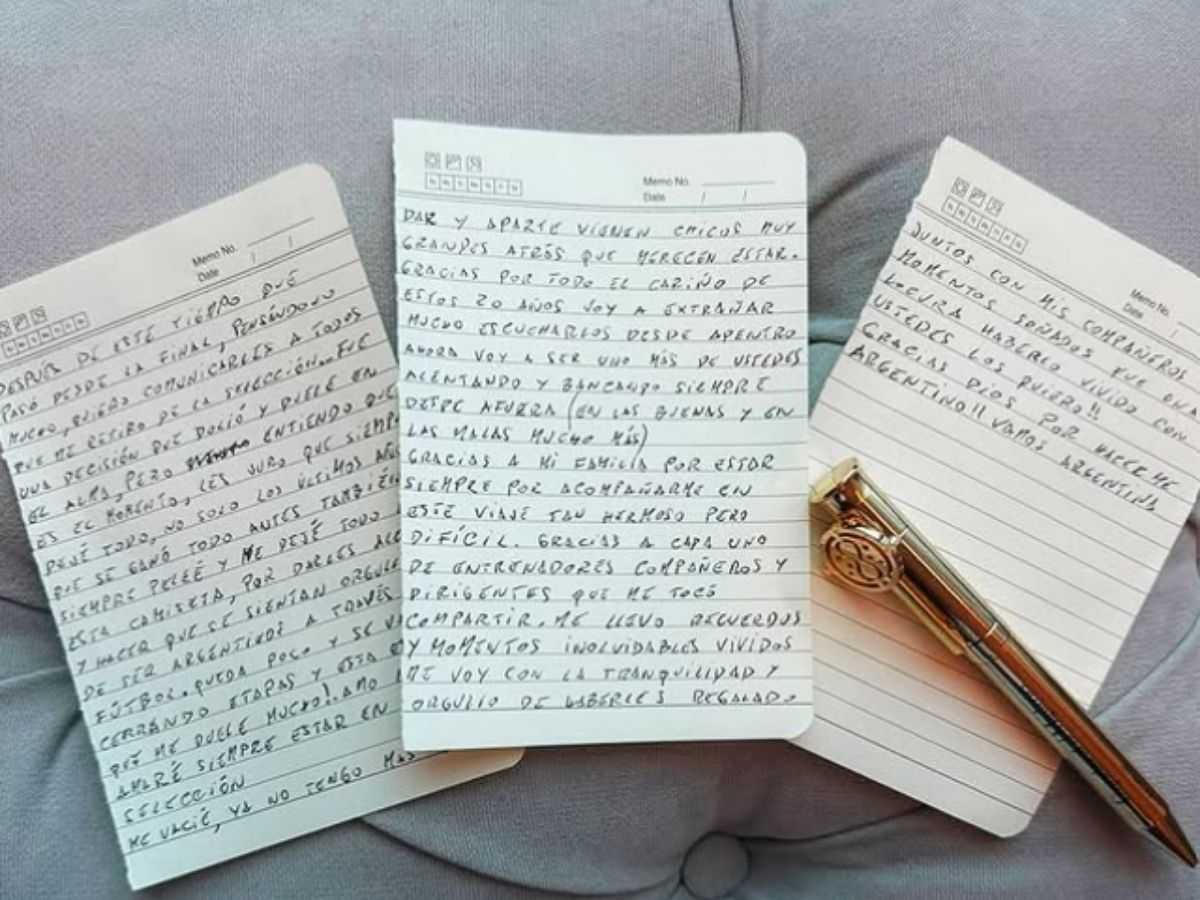 Memo No.
Date / /
DESPUÉS DE ESTE TIEMPO QUE
PASÓ DESDE LA FINAL, PENSÁNDOLO
MUCHO, QUIERO COMUNICARLES A TODOS
QUE ME RETIRO DE LA SELECCIÓN.. FUE
UNA DECISIÓN QUE DOLIÓ Y DUELE EN
EL ALMA, PERO ENTIENDO QUE
ES EL MOMENTO, LES JURO QUE SIEMP
DEJÉ TODO, NO SOLO LOS ÚLTIMOS AÑOS
QUE SE GANÓ TODO ANTES TAMBIÉN
SIEMPRE PELEÉ Y ME DEJÉ TODO
ESTA CAMISETA, POR DARLES ALE
Y HACER QUE SE SIENTAN ORGULL
DE SER ARGENTINOS A TRAVÉS
FÚTBOL. QUEDA POCO Y SE VA
CERRANDO ETAPAS Y ESTA
QUE ME DUELE MUCHO!. AMO
AMARÉ SIEMPRE ESTAR EN
SELECCIÓN
ME VACIÉ, YA NO TENGO MAS
Memo No.
Date / /
DAR Y APARTE VIENEN CHICOS MUY
GRANDES ATRÁS QUE MERECEN ESTAR.
GRACIAS POR TODO EL CARIÑO DE
ESTOS 20 AÑOS VOY A EXTRAÑAR
MUCHO ESCUCHARLOS DESDE ADENTRO
AHORA VOY A SER UNO MÁS DE USTEDES
ALENTANDO Y BANCANDO SIEMPRE
DESDE AFUERA (EN LAS BUENAS Y EN
LAS MALAS MUCHO MÁS)
GRACIAS A MI FAMILIA POR ESTAR
SIEMPRE POR ACOMPAÑARME EN
ESTE VIAJE TAN HERMOSO PERO
DIFÍCIL. GRACIAS A CADA UNO
DE ENTRENADORES COMPAÑEROS Y
DIRIGENTES QUE ME TOCÓ
COMPARTIR. ME LLEVO RECUERDOS
Y MOMENTOS INOLVIDABLES VIVIDOS
ME VOY CON LA TRANQUILIDAD Y
ORGULLO DE HABERLES REGALADO
Memo No.
Date
JUNTOS CON MIS COMPAÑEROS
MOMENTOS SOÑADOS FUE UNA
LOCURA HABERLO VIVIDO CON
USTEDES LOS QUIERO!!
GRACIAS DIOS POR HACERME
ARGENTINO!! VAMOS ARGENTINA